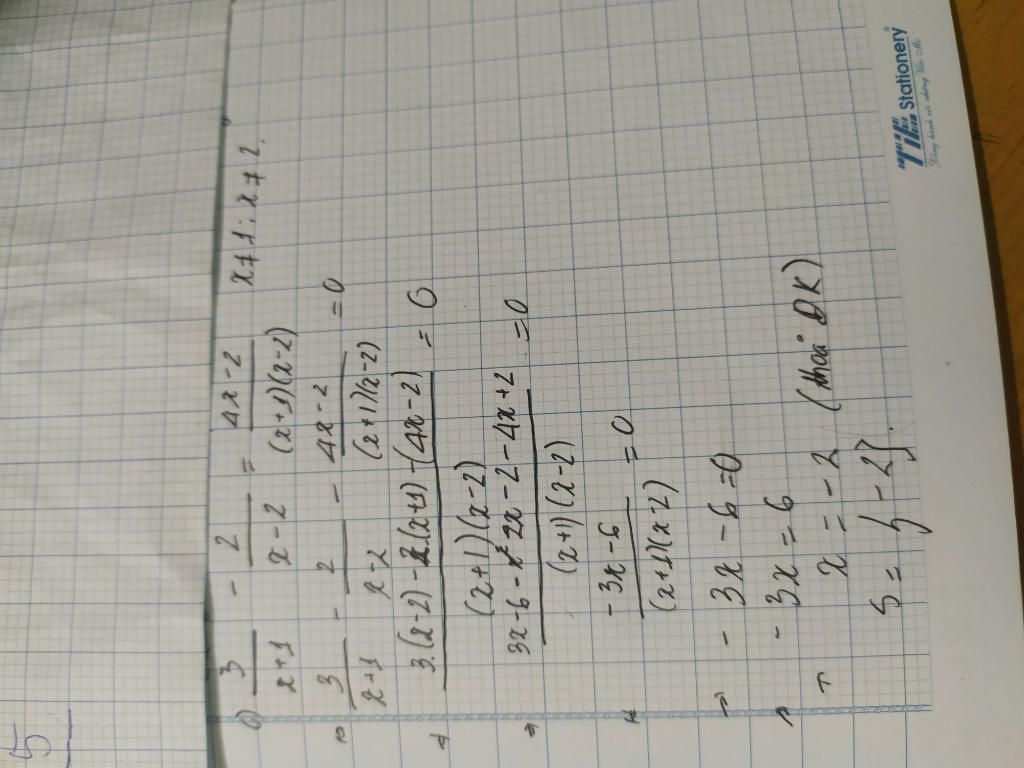 5
c) 3/(x+1) - 2/(x-2) = (4x-2)/((x+1)(x-2)) x≠1; x≠2.
⇒ 3/(x+1) - 2/(x-2) - (4x-2)/((x+1)(x-2)) = 0
⇒ (3.(x-2) - 2.(x+1) - (4x-2))/((x+1)(x-2)) = 0
⇒ (3x-6-2x-2-4x+2)/((x+1)(x-2)) = 0
⇒ (-3x-6)/((x+1)(x-2)) = 0
⇒ -3x-6=0
⇒ -3x=6
⇒ x=-2 (thoả ĐK)
S={-2}.
TiE Stationery